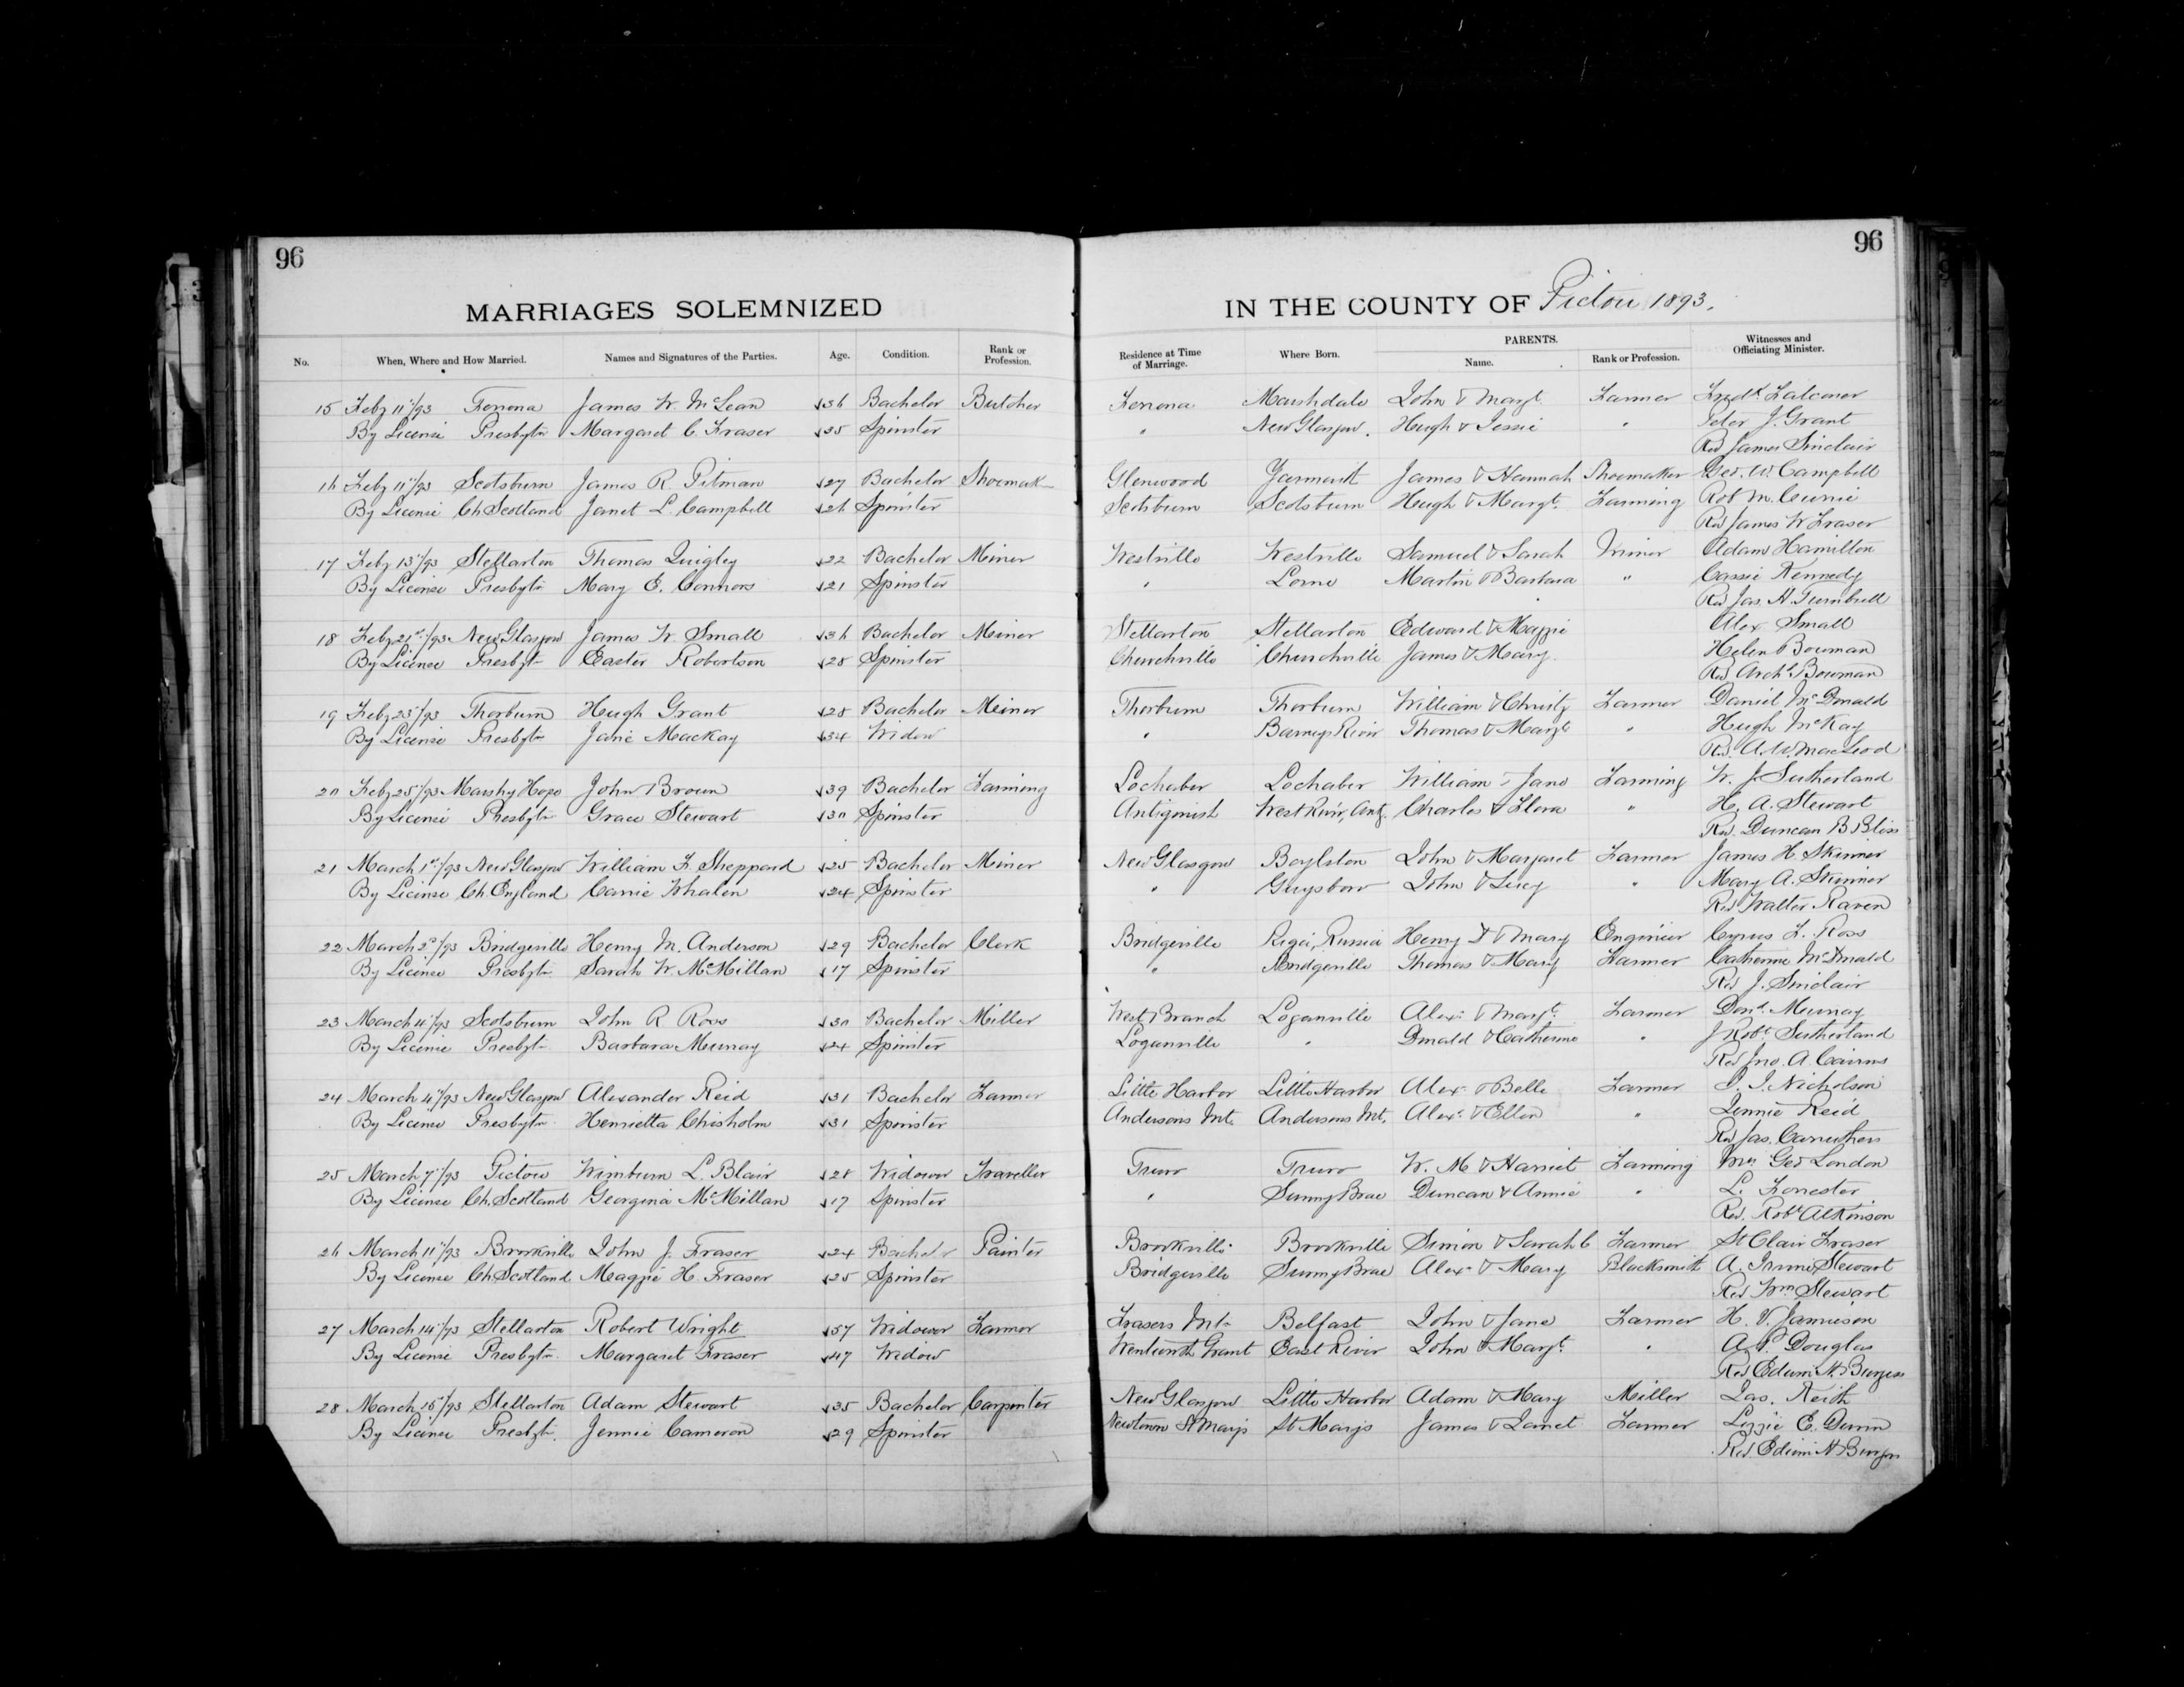 96
96
MARRIAGES SOLEMNIZED IN THE COUNTY OF Pictou 1893.
No. When, Where and How Married. Names and Signatures of the Parties. Age. Condition. Rank or Profession. Residence at Time of Marriage. Where Born. PARENTS. Name. Rank or Profession. Witnesses and Officiating Minister.
15 Feby 11"/93 Ferrona James W. McLean 36 Bachelor Butcher Ferrona Marshdale John & Margt. Farmer Fredk. Falconer
By License Presbytn Margaret C. Fraser 35 Spinster " New Glasgow. Hugh & Jessie " Peter J. Grant
Rev James Sinclair
16 Feby 11"/93 Scotsburn James R. Pitman 27 Bachelor Shoemak Glenwood Yarmouth James & Hannah Shoemaker Geo. W. Campbell
By License Ch Scotland Janet L Campbell 26 Spinster Scotsburn Scotsburn Hugh & Margt. Farming Rob M. Currie
Rev James W Fraser
17 Feby 13"/93 Stellarton Thomas Quigley 22 Bachelor Meiner Westville Westville Samuel & Sarah Miner Adam Hamilton
By License Presbytn Mary E. Connors 21 Spinster " Lorne Martin & Barbara " Cassie Kennedy
Rev Jas. A. Turnbull
18 Feby 21st/93 New Glasgow James W. Small 36 Bachelor Meiner Stellarton Stellarton Edward & Maggie Alex Small
By License Presbytn Easter Robertson 28 Spinster Churchville Churchville James & Mary. Helen Bowman
Rev Archd. Bowman
19 Feby 23"/93 Thorburn Hugh Grant 28 Bachelor Meiner Thorburn Thorburn William & Christy Farmer Daniel McDonald
By License Presbytn Jane MacKay 34 Widow " Barneys River Thomas & Margt " Hugh McKay
Rev. A. W. MacLeod
20 Feby 25"/93 Marshy Hope John Brown 39 Bachelor Farming Lochaber Lochaber William & Jane Farming W. J. Sutherland
By License Presbytn Grace Stewart 30 Spinster Antigonish West River, Antg. Charles & Flora " H. A. Stewart
Rev. Duncan B Bliss
21 March 1st/93 New Glasgow William F. Sheppard 25 Bachelor Miner New Glasgow Boylston John & Margaret Farmer James H. Skinner
By License Ch. England Carrie Whalen 24 Spinster " Guysboro John & Lucy " Mary A. Skinner
Rev Walter Raven
22 March 2d/93 Bridgeville Henry M. Anderson 29 Bachelor Clerk Bridgeville Riga, Russia Henry D & Mary Engineer Cyrus F. Ross
By License Presbytn Sarah W. McMillan 17 Spinster " Bridgeville Thomas & Mary Farmer Catherine McDonald
Rev J. Sinclair
23 March 4"/93 Scotsburn John R Ross 30 Bachelor Miller West Branch Loganville Alexr & Margt. Farmer Dond. Murray
By License Presbytn Barbara Murray 24 Spinster Loganville " Donald & Catherine " J Robt. Sutherland
Rev Jno. A Cairns
24 March 4"/93 New Glasgow Alexander Reid 31 Bachelor Farmer Little Harbor Little Harbor Alexr & Belle Farmer J. Nicholson
By License Presbytn Henrietta Chisholm 31 Spinster Andersons Mt. Andersons Mt. Alexr & Ellen " Jennie Reid
Rev Jas. Carruthers
25 March 7"/93 Pictou Wimburn L. Blair 28 Widower Traveller Truro Truro W. M & Harriet Farming Mrs Geo London
By License Ch. Scotland Georgina McMillan 17 Spinster " Sunny Brae Duncan & Annie " L. Forrester
Rev. Robt Atkinson
26 March 11"/93 Brookville John J. Fraser 24 Bachelor Painter Brookville Brookville Simon & Sarah C Farmer St Clair Fraser
By License Ch. Scotland Maggie H. Fraser 25 Spinster Bridgeville Sunny Brae Alexr & Mary Blacksmith A. Irvine Stewart
Rev Wm Stewart
27 March 14"/93 Stellarton Robert Wright 57 Widower Farmer Frasers Mtn Belfast John & Jane Farmer H. V. Jamieson
By License Presbytn. Margaret Fraser 47 Widow Wentworth Grant East River John & Margt. " A. P. Douglas
Rev Edwin H. Burgess
28 March 15"/93 Stellarton Adam Stewart 35 Bachelor Carpenter New Glasgow Little Harbor Adam & Mary Miller Jas. Keith
By License Presbytn. Jennie Cameron 29 Spinster Newtown St Marys St Marys James & Janet Farmer Lizzie E. Dunn
Rev. Edwin H Burgess